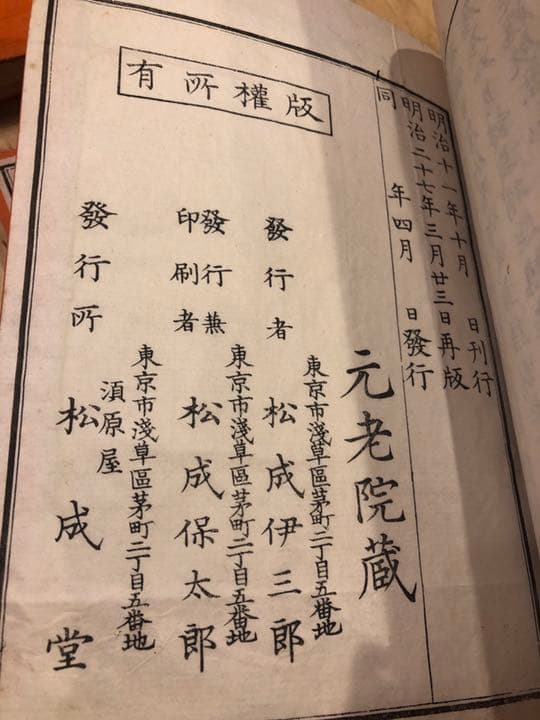 明治十一年十月　日刊行
明治二十七年三月廿三日再版
同　年四月　日發行
元老院蔵
版權所有
發行者
東京市淺草區茅町二丁目五番地
松成伊三郎
發行兼
印刷者
東京市淺草區茅町二丁目五番地
松成保太郎
發行所
東京市淺草區茅町二丁目五番地
須原屋
松成堂